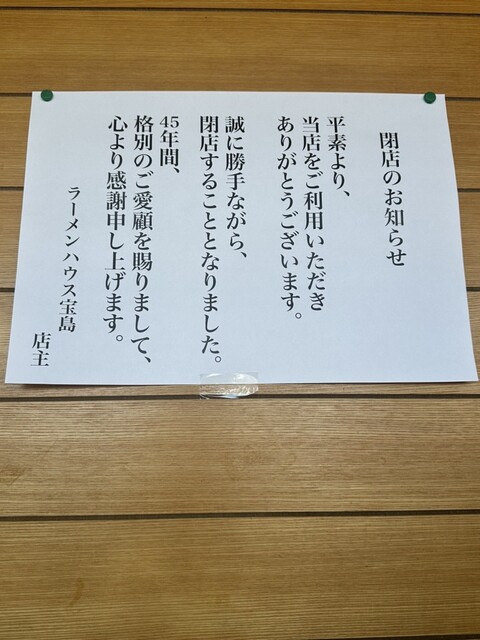 閉店のお知らせ
平素より、
当店をご利用いただき
ありがとうございます。
誠に勝手ながら、
閉店することとなりました。
45年間、
格別のご愛顧を賜りまして、
心より感謝申し上げます。
ラーメンハウス宝島
店主